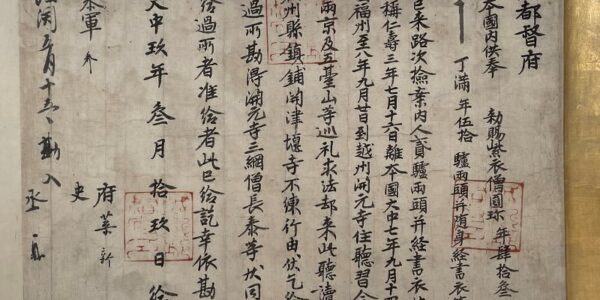 都督府
本國內供奉 敕賜紫衣僧圓珍 年肆拾叁
丁滿 年伍拾 驢兩頭并隨身經書衣
已来路次撿案內人貳驢兩頭并經書衣
稱仁壽三年七月十六日離本國大中七年九月十四
福州至八年九月廿日到越州開元寺住聽習今
兩京及五臺山等巡礼求法却来此聽讀
州縣鎮鋪關津堰寺不練行由伏乞給
過所勘得開元寺三綱僧長泰等狀同
給過所者准給者此已給訖幸依勘
大中玖年叁月拾玖日給
府葉新
史
叅軍
五月十五日勘入
丞